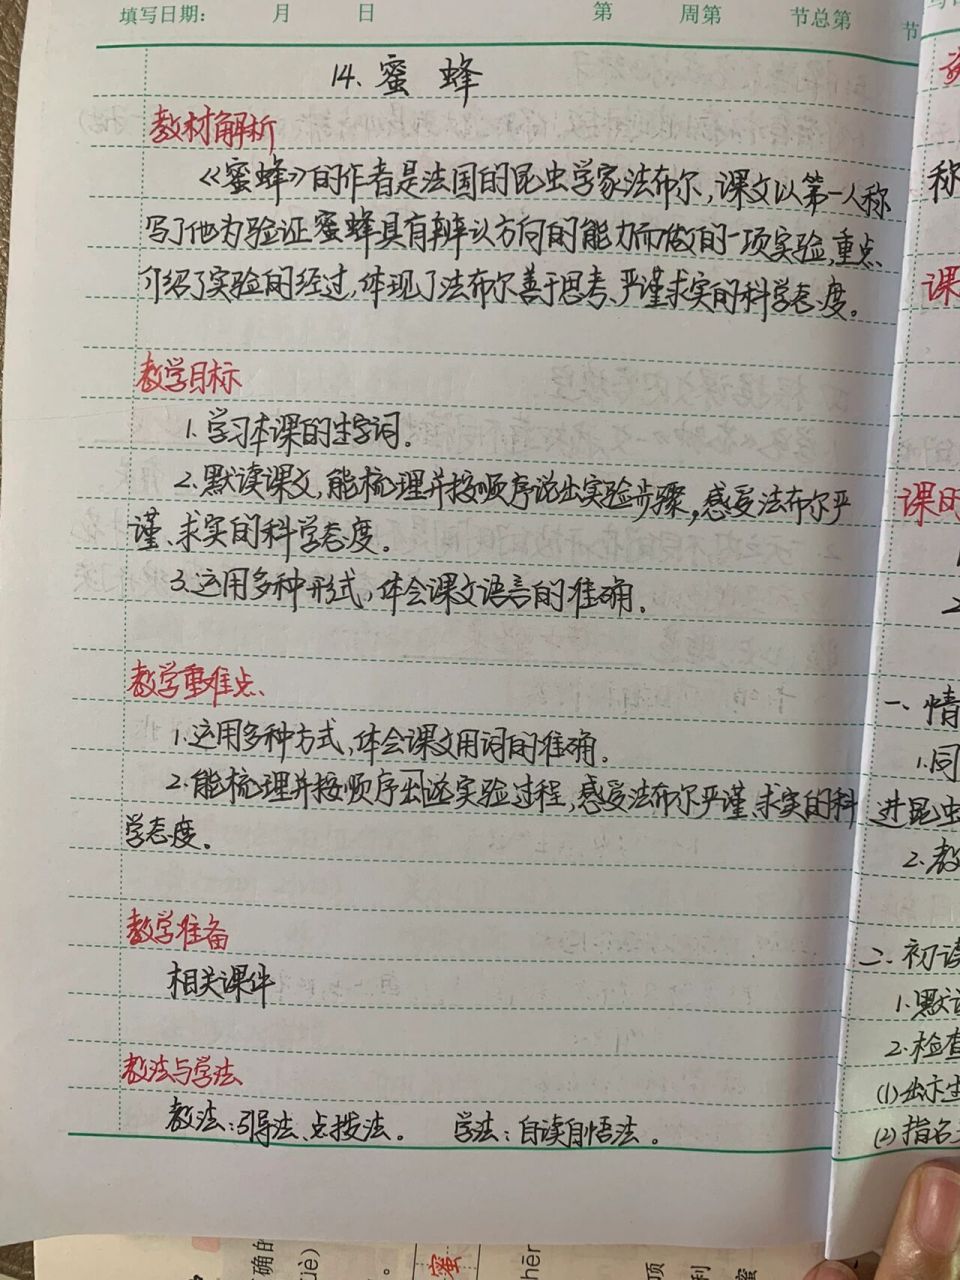 填写日期： 月 日 第 周第 节总第 节
14.蜜 蜂
教材解析
《蜜蜂》的作者是法国的昆虫学家法布尔，课文以第一人称
写了他为验证蜜蜂具有辨认方向的能力而做的一项实验，重点
介绍了实验的经过，体现了法布尔善于思考、严谨求实的科学态度。
教学目标
1.学习本课的生字词。
2.默读课文，能梳理并按顺序说出实验步骤，感受法布尔严
谨、求实的科学态度。
3.运用多种形式，体会课文语言的准确。
教学重难点、
1.运用多种方式，体会课文用词的准确。
2.能梳理并按顺序出述实验过程，感受法布尔严谨、求实的科
学态度。
教学准备
相关课件
教法与学法
教法：引导法、点拨法。 学法：自读自悟法。
称
课
课时
一、情
1.同
进昆虫
2.教
二、初读
1.默读
2.检查
(1)出示生
(2)指名
确的
蜜
hēr
项
利
蜜